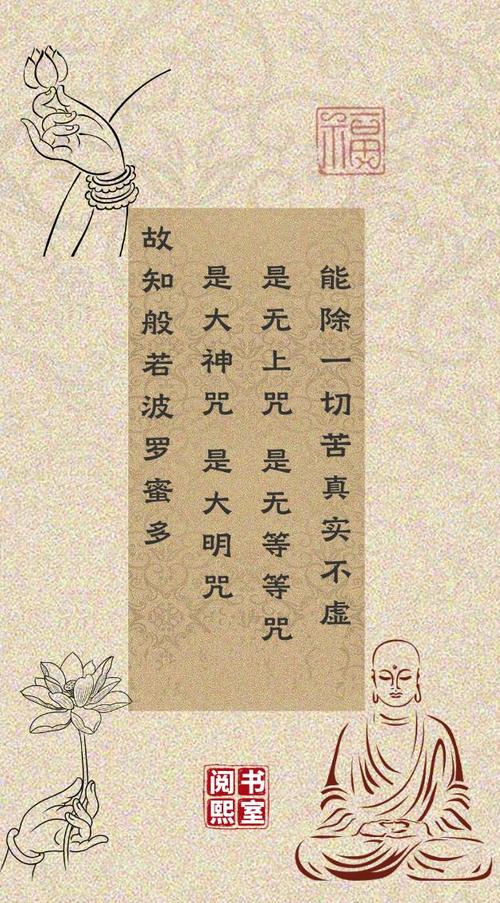 福
故知般若波罗蜜多
是大神咒 是大明咒
是无上咒 是无等等咒
能除一切苦真实不虚
阅熙
书室